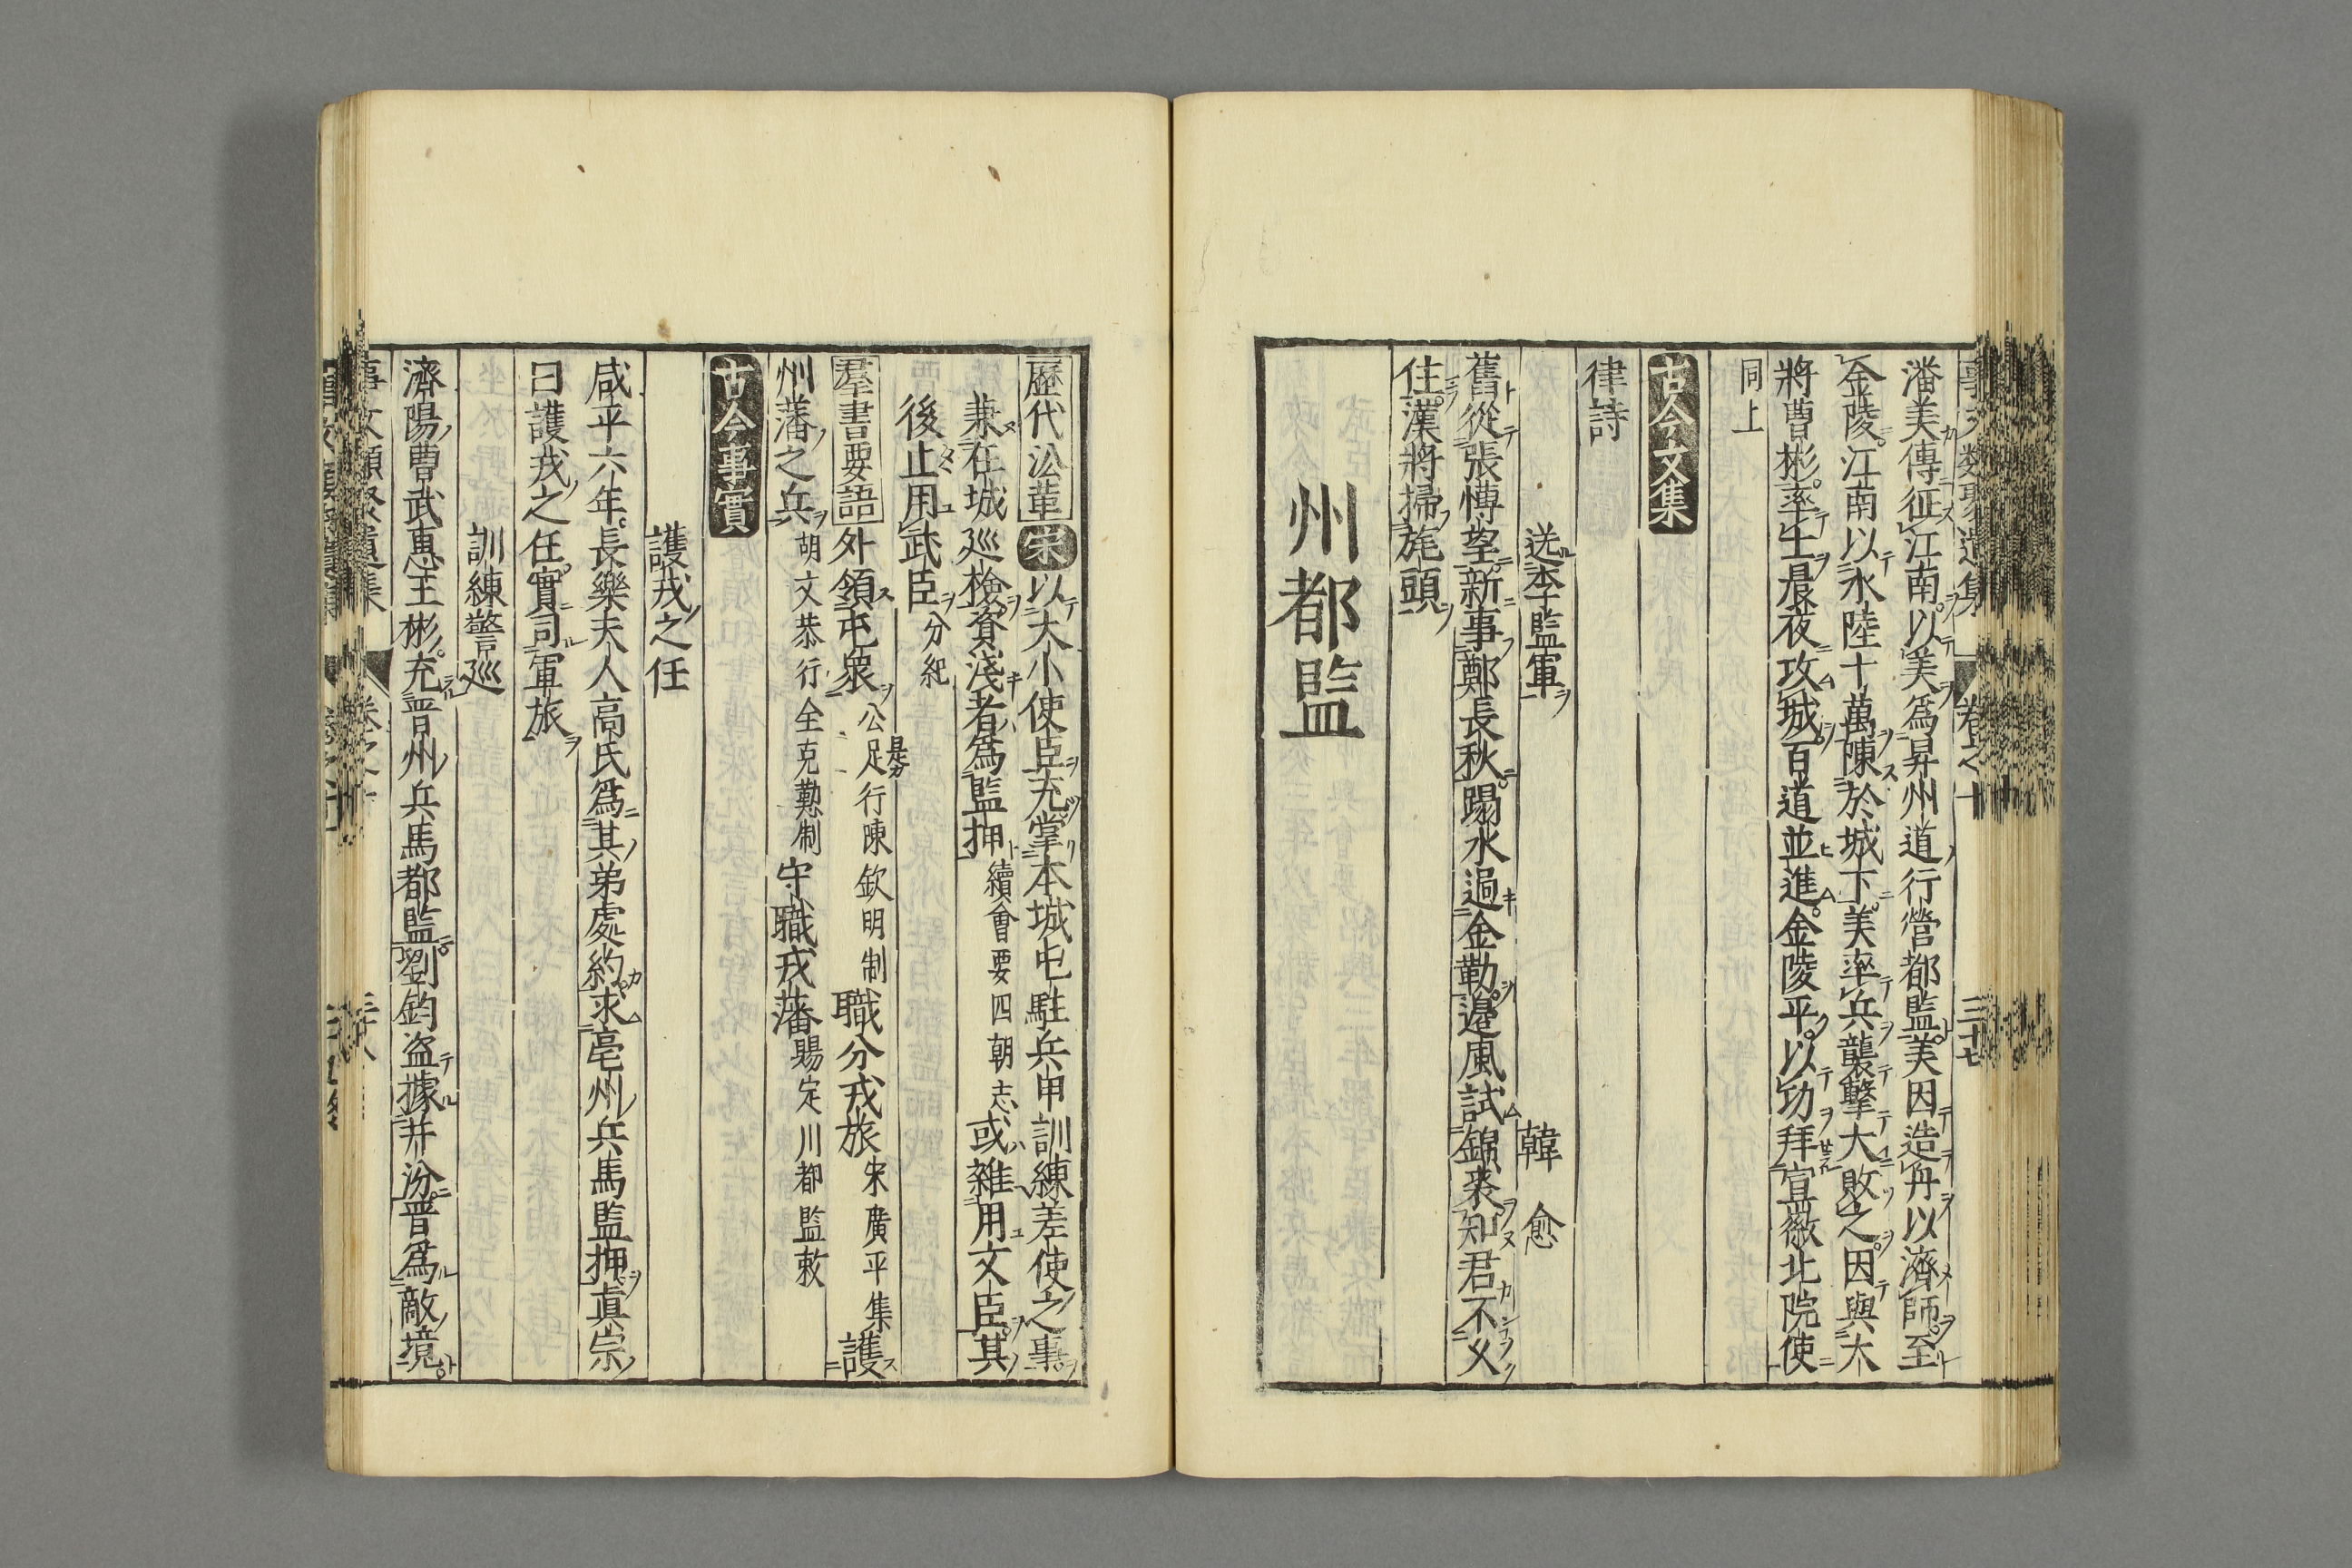 潘美傳征江南以美爲昇州道行營都監美因造舟以濟師至
金陵江南以水陸十萬陳於城下美率兵襲擊大敗之因與大
將曹彬率士晨夜攻城百道並進金陵平以功拜宣徽北院使
同上
古今文集
律詩
送李監軍 韓愈
舊從張愽望新事鄭長秋踢水過金勒邉風試錦裘知君不乆
住漢將掃旄頭
州都監
歷代㳂革 宋 以大小使臣充掌本城屯駐兵甲訓練差使之事
兼在城巡檢資淺者爲監押 續會要四朝志 或雜用文臣其
後止用武臣 分紀
羣書要語 外領屯衆 公是分足行陳欽明制 職分戎旅 宋廣平集 護
州藩之兵 胡文恭行全克勤制 守職戎藩 賜定川都監敕
古今事實
護戎之任
咸平六年長樂夫人高氏爲其弟處約求亳州兵馬監押真宗
曰護戎之任實司軍旅
訓練警巡
濟陽曹武惠王彬充晋州兵馬都監劉鈞盗據并汾晋爲敵境